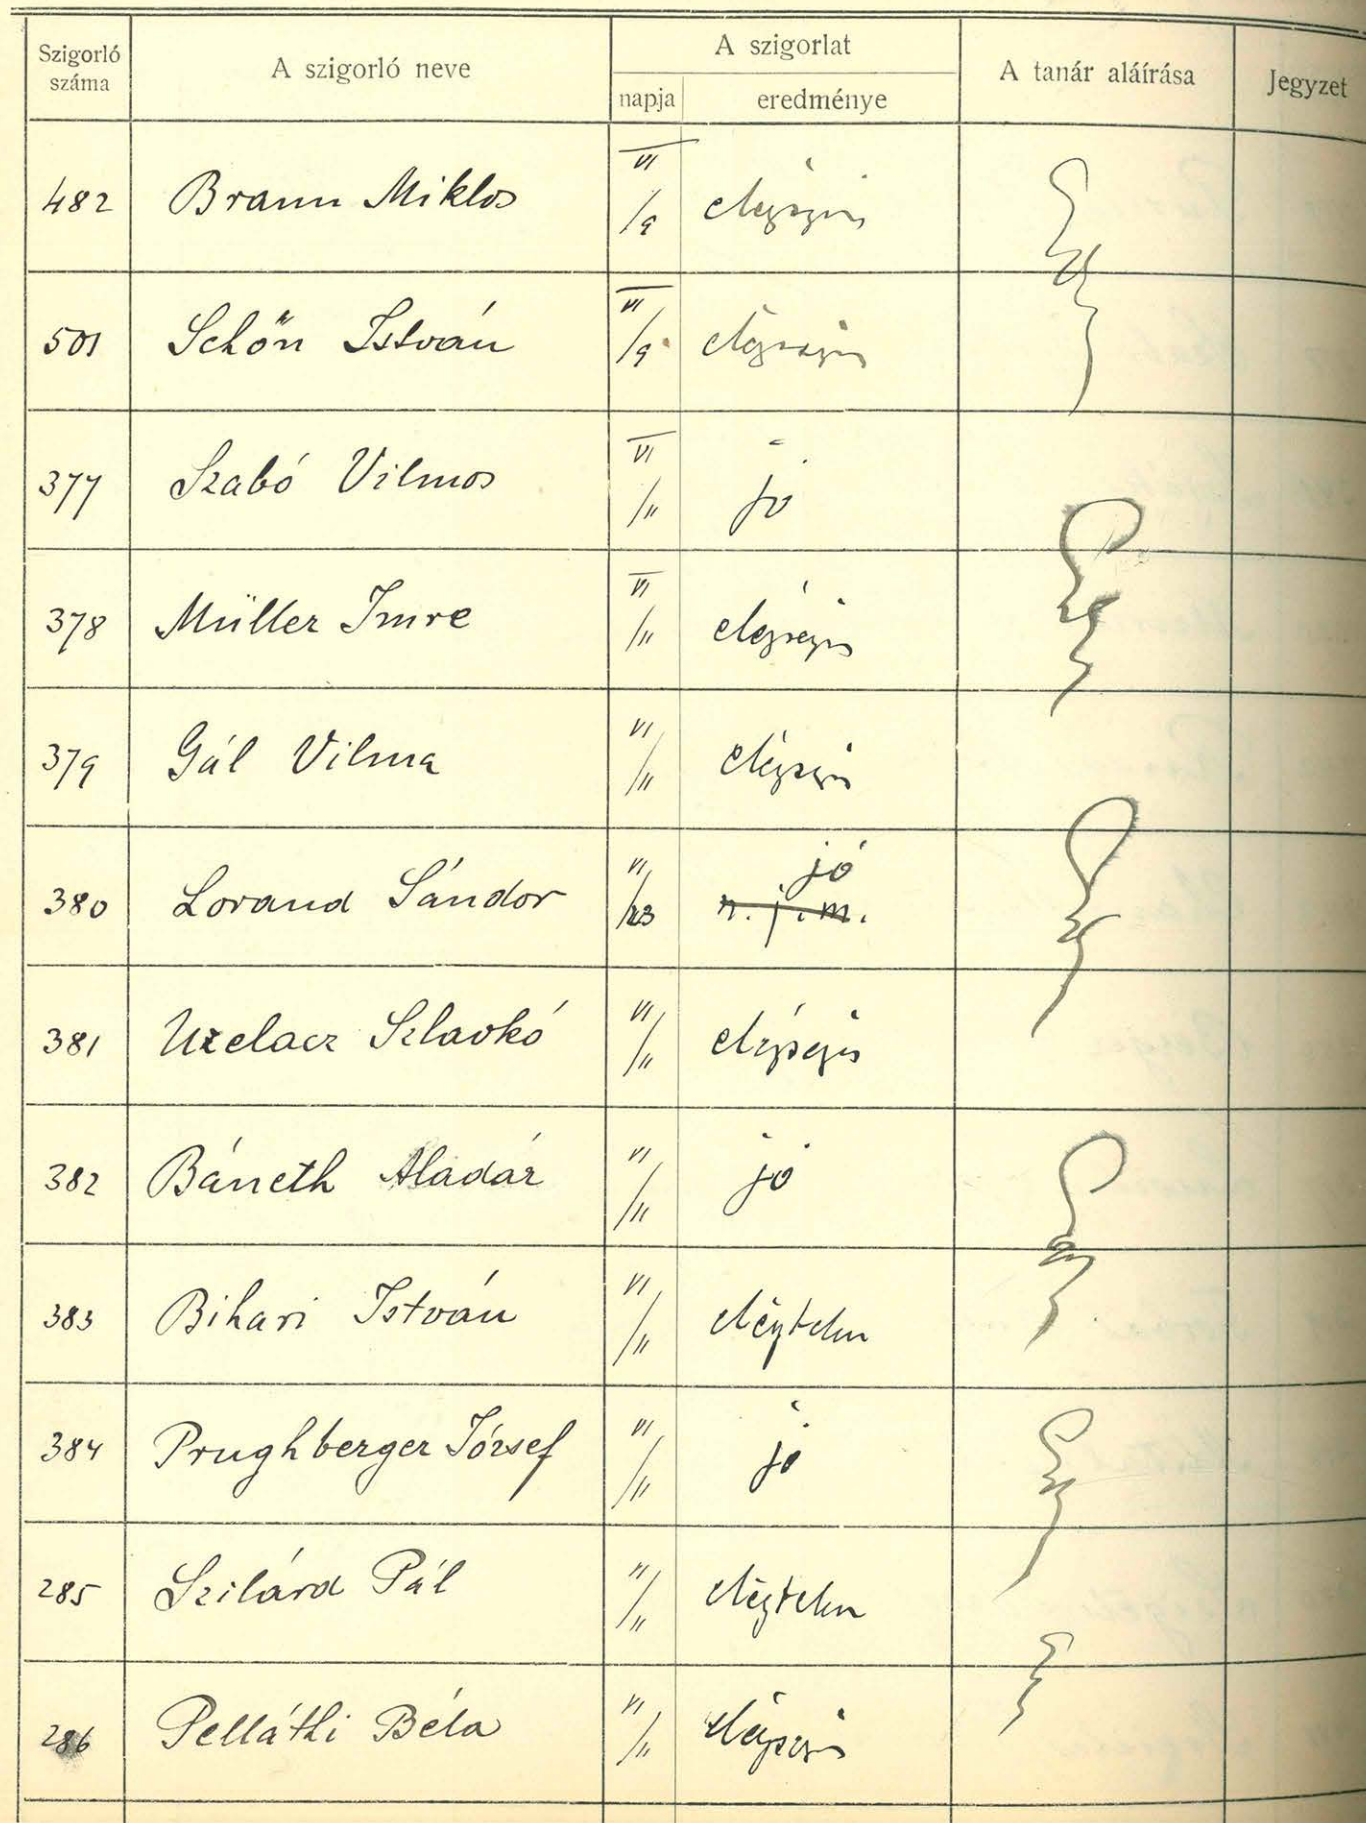 Szigorló száma A szigorló neve A szigorlat napja eredménye A tanár aláírása Jegyzet
482 Braun Miklos VI/9 elégséges
501 Schőn István VI/9 elégséges
377 Szabó Vilmos VI/11 jó
378 Müller Imre VI/11 elégséges
379 Gál Vilma VI/11 elégséges
380 Lorand Sándor VI/23 jó n. j. m.
381 Uzelacz Szlavkó VI/11 elégséges
382 Báneth Aladár VI/11 jó
383 Bihari István VI/11 elégtelen
384 Prughberger József VI/11 jó
285 Szilárd Pál VI/11 elégtelen
286 Pelláthi Béla VI/11 elégséges